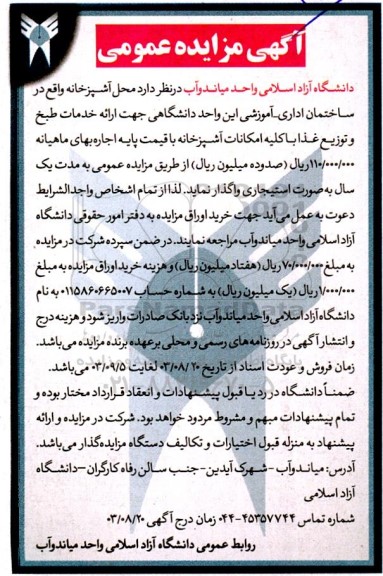 آگهی مزایده عمومی
دانشگاه آزاد اسلامی واحد میاندوآب درنظر دارد محل آشپزخانه واقع در
ساختمان اداری-آموزشی این واحد دانشگاهی جهت ارائه خدمات طبخ
و توزیع غذا با کلیه امکانات آشپزخانه با قیمت پایه اجاره بهای ماهیانه
۱۱۰/۰۰۰/۰۰۰ ریال (صدوده میلیون ریال) از طریق مزایده عمومی به مدت یک
سال به صورت استیجاری واگذار نماید. لذا از تمام اشخاص واجدالشرایط
دعوت به عمل می‌آید جهت خرید اوراق مزایده به دفتر امور حقوقی دانشگاه
آزاد اسلامی واحد میاندوآب مراجعه نمایند. در ضمن سپرده شرکت در مزایده
به مبلغ ۷۰/۰۰۰/۰۰۰ ریال (هفتاد میلیون ریال) و هزینه خرید اوراق مزایده به مبلغ
۱/۰۰۰/۰۰۰ ریال (یک میلیون ریال) به شماره حساب ۰۱۱۵۸۶۰۶۶۵۰۰۷ به نام
دانشگاه آزاد اسلامی واحد میاندوآب نزد بانک صادرات واریز شود و هزینه درج
و انتشار آگهی در روزنامه‌های رسمی و محلی برعهده برنده مزایده می‌باشد.
زمان فروش و عودت اسناد از تاریخ ۰۳/۰۸/۲۰ لغایت ۰۳/۰۹/۵ می‌باشد.
ضمناً دانشگاه در رد یا قبول پیشنهادات و انعقاد قرارداد مختار بوده و
تمام پیشنهادات مبهم و مشروط مردود خواهد بود. شرکت در مزایده و ارائه
پیشنهاد به منزله قبول اختیارات و تکالیف دستگاه مزایده‌گذار می‌باشد.
آدرس: میاندوآب - شهرک آیدین - جنب سالن رفاه کارگران - دانشگاه
آزاد اسلامی
شماره تماس ۴۵۳۵۷۷۴۴-۰۴۴ زمان درج آگهی ۰۳/۰۸/۲۰
روابط عمومی دانشگاه آزاد اسلامی واحد میاندوآب